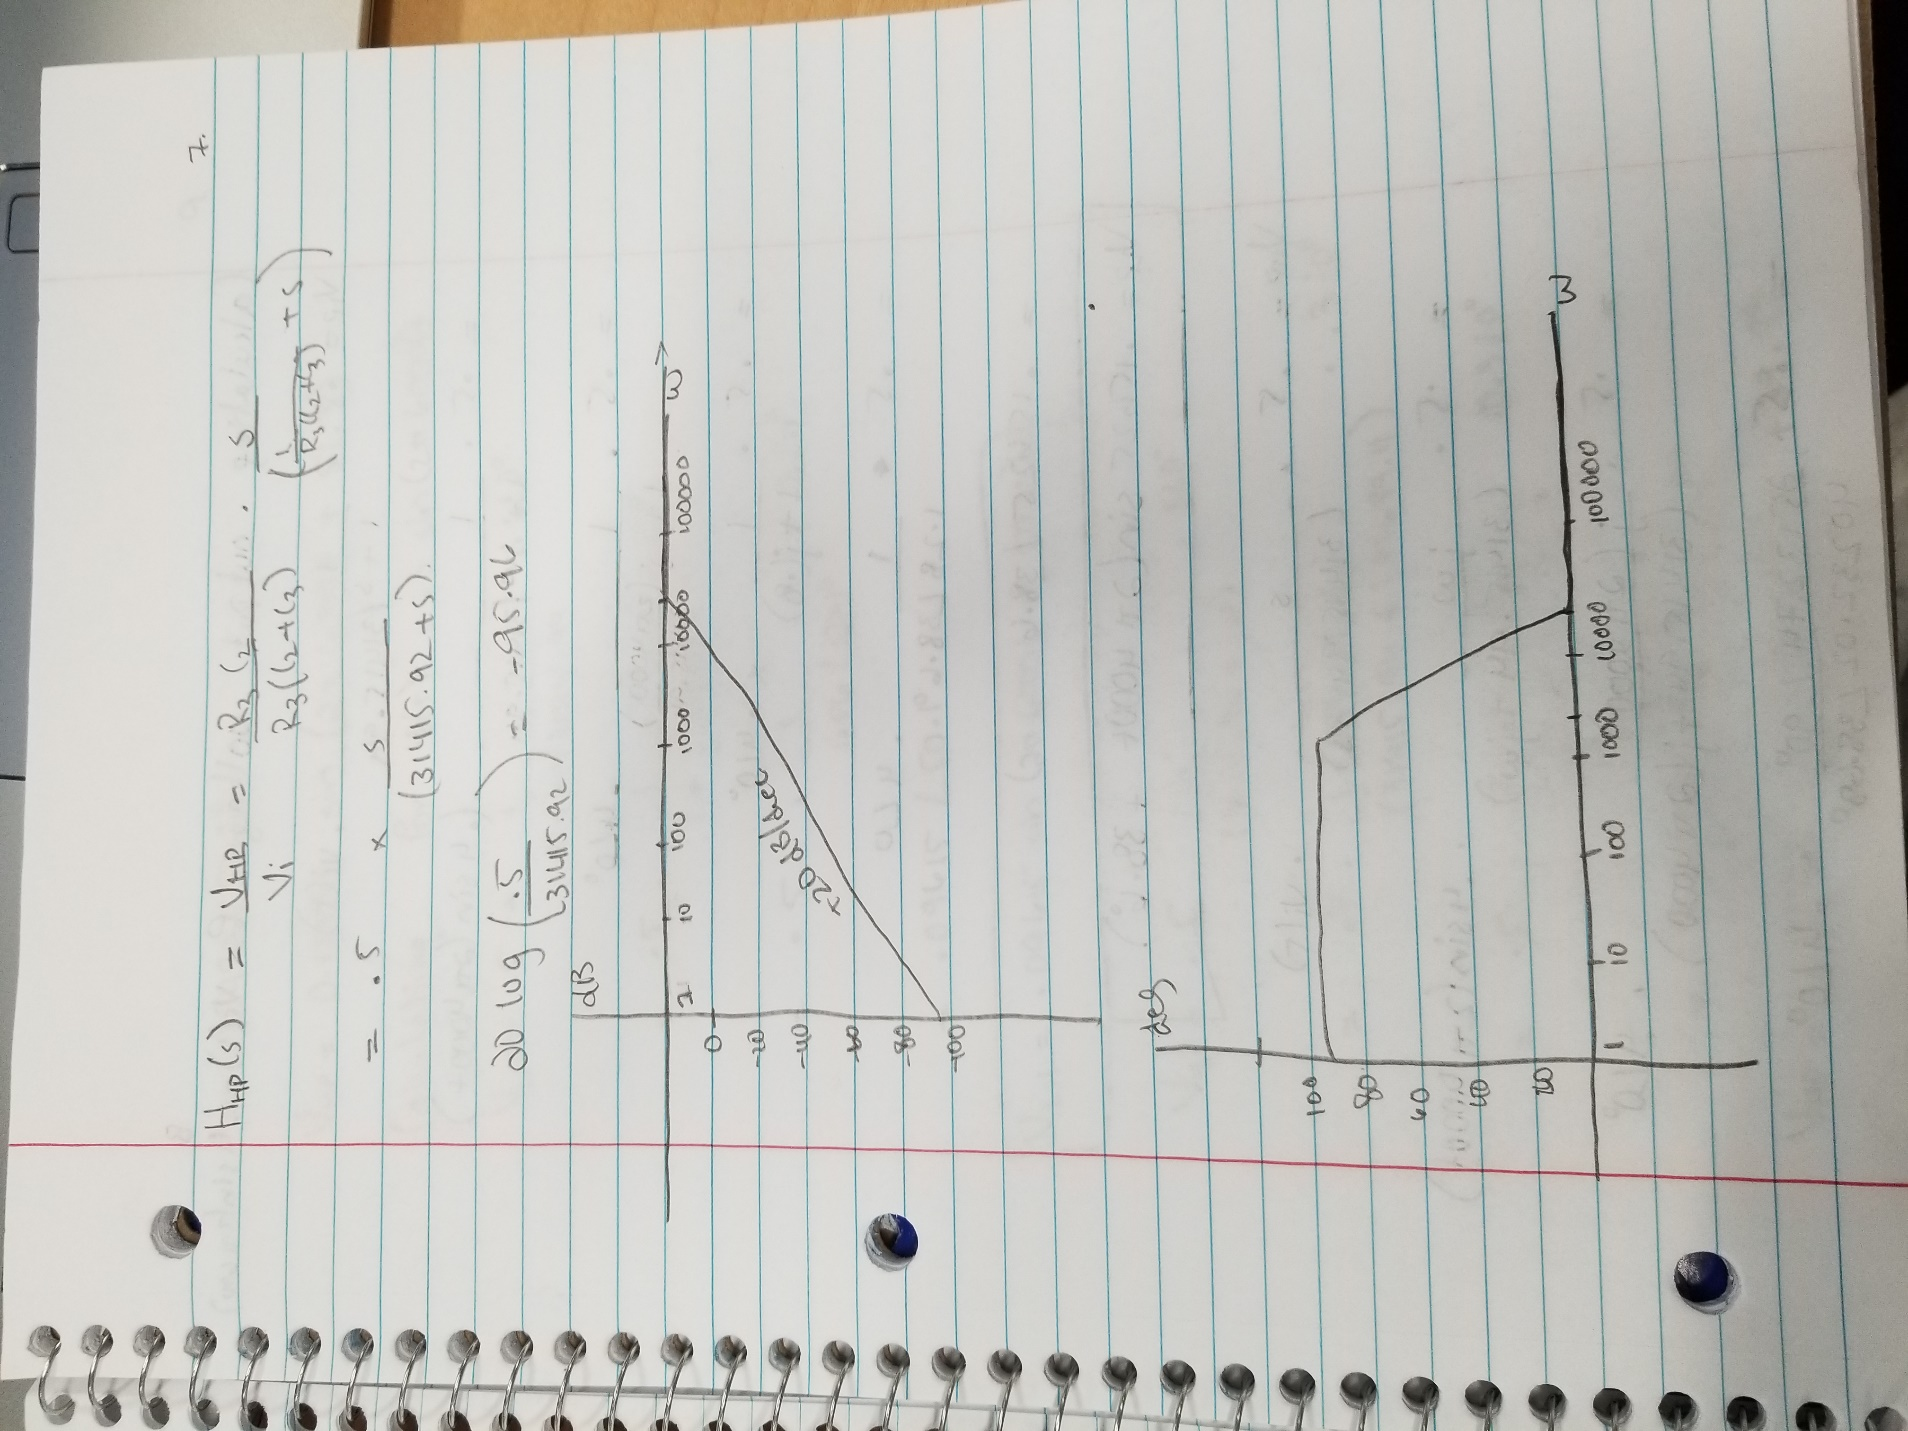 7.
H_HP(s) = V_HP / V_i = R_3 C_2 / R_3(C_2+C_3) · s / (1/R_3(C_2+C_3) + s)
= .5 × s / (31415.92+s).
20 log (.5 / 31415.92) = -95.96
dB
1 10 100 1000 10000 100000 ω
0
-20
-40
-60
-80
-100
+20 dB/dec
deg
100
80
60
40
20
1 10 100 1000 10000 100000 ω